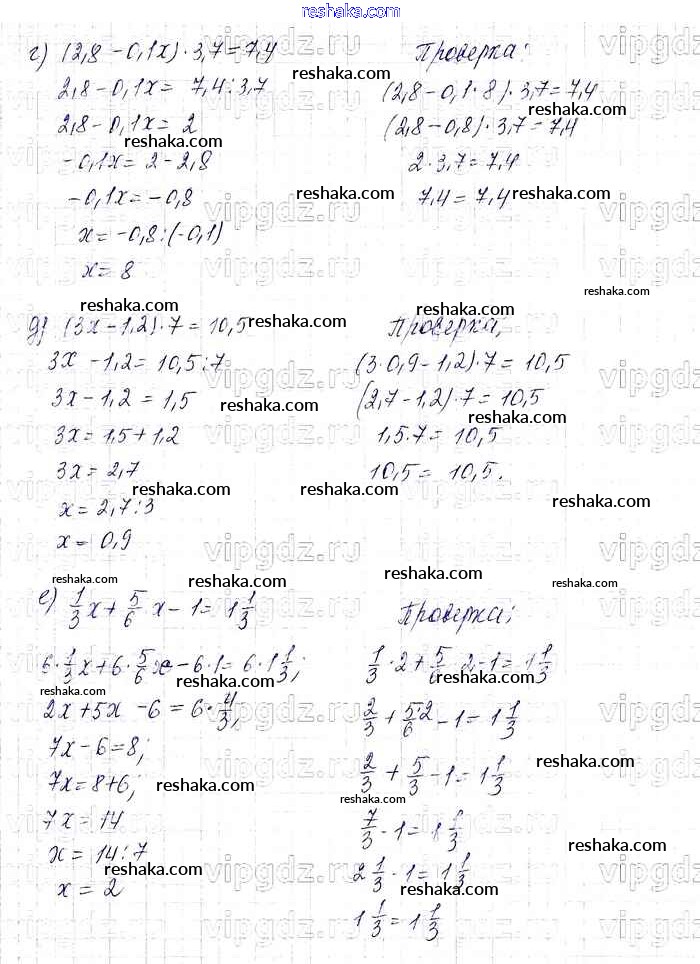 reshaka.com
г) (2,8 - 0,1x) · 3,7 = 7,4
2,8 - 0,1x = 7,4 : 3,7
2,8 - 0,1x = 2
-0,1x = 2 - 2,8
-0,1x = -0,8
x = -0,8 : (-0,1)
x = 8
Проверка:
(2,8 - 0,1 · 8) · 3,7 = 7,4
(2,8 - 0,8) · 3,7 = 7,4
2 · 3,7 = 7,4
7,4 = 7,4
д) (3x - 1,2) · 7 = 10,5
3x - 1,2 = 10,5 : 7
3x - 1,2 = 1,5
3x = 1,5 + 1,2
3x = 2,7
x = 2,7 : 3
x = 0,9
Проверка:
(3 · 0,9 - 1,2) · 7 = 10,5
(2,7 - 1,2) · 7 = 10,5
1,5 · 7 = 10,5
10,5 = 10,5.
е) 1/3 x + 5/6 x - 1 = 1 1/3
6 · 1/3 x + 6 · 5/6 x - 6 · 1 = 6 · 1 1/3;
2x + 5x - 6 = 6 · 4/3;
7x - 6 = 8;
7x = 8 + 6;
7x = 14
x = 14 : 7
x = 2
Проверка:
1/3 · 2 + 5/6 · 2 - 1 = 1 1/3
2/3 + 5·2/6 - 1 = 1 1/3
2/3 + 5/3 - 1 = 1 1/3
7/3 - 1 = 1 1/3
2 1/3 - 1 = 1 1/3
1 1/3 = 1 1/3
reshaka.com
vipgdz.ru